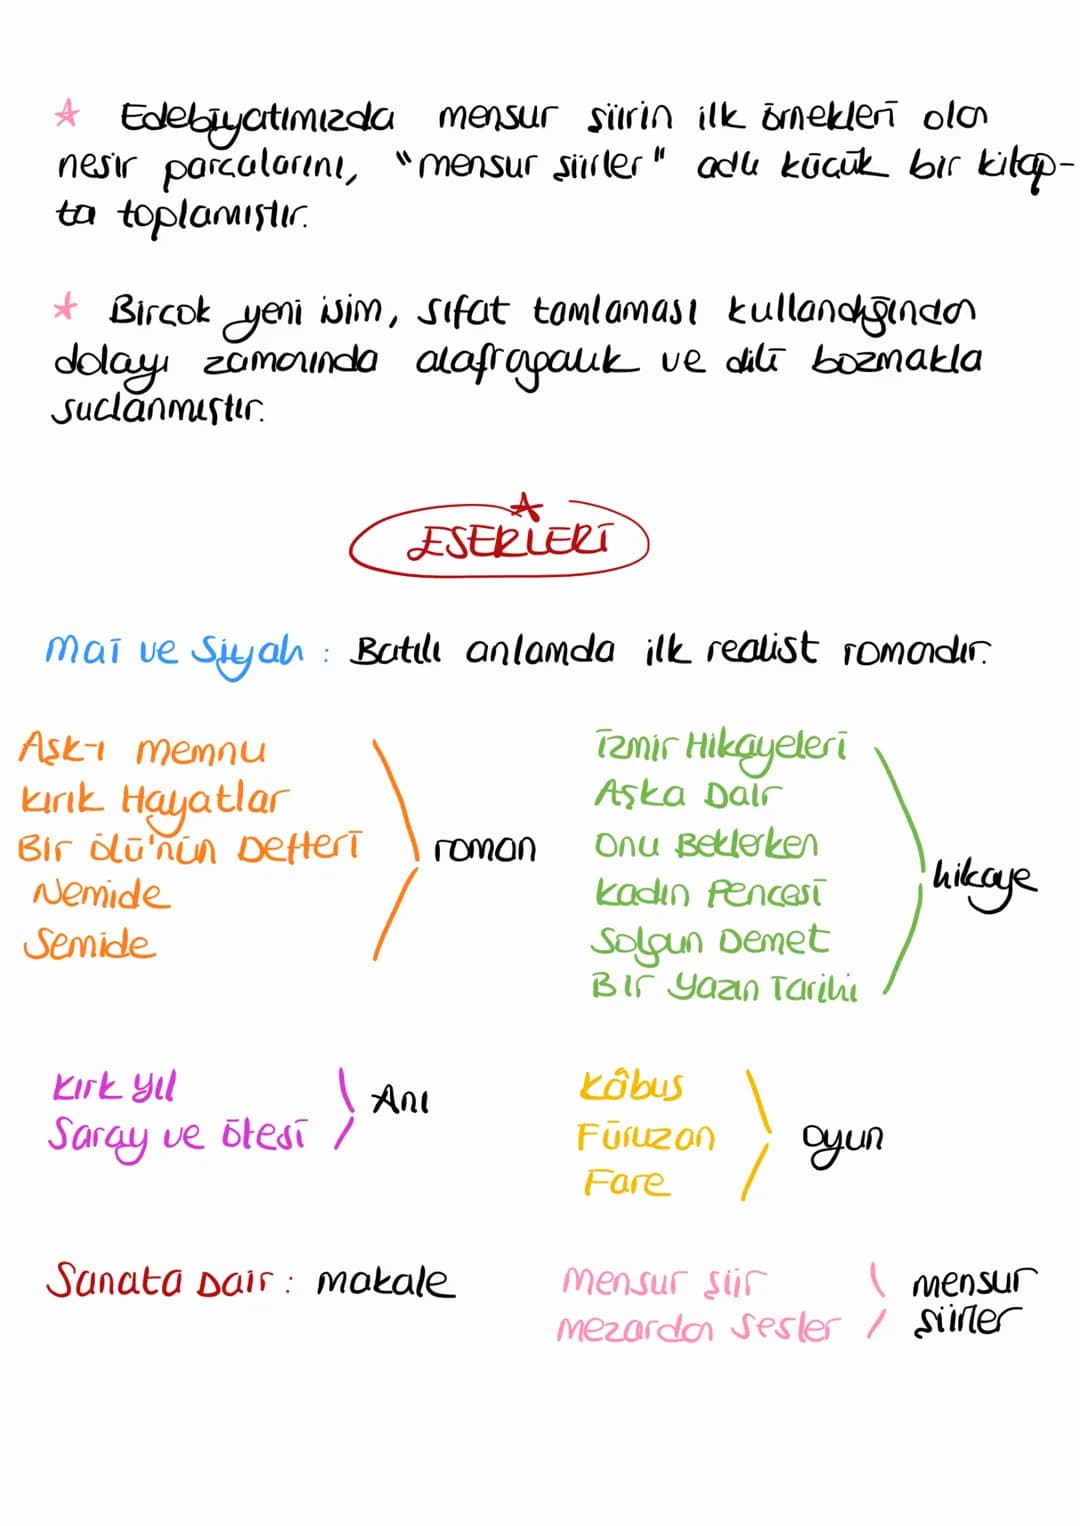 Edebiyatımızda mensur şiirin ilk örnekleri olan
nesir parçalarını, "mensur şiirler" adlı küçük bir kitap-
ta toplamıştır.
Birçok yeni isim, sıfat tamlaması kullandığından
dolayı zamanında alafrangalık ve dili bozmakla
suçlanmıştır.
ESERLERİ
Mai ve Siyah : Batılı anlamda ilk realist romandır.
Aşk-ı memnu
Kırık Hayatlar
Bir ölü'nün Defteri
Nemide
Semide
roman
İzmir Hikayeleri
Aşka Dair
Onu Beklerken
Kadın Pençesi
Solgun Demet
Bir Yazın Tarihi
hikaye
Kırk Yıl
Saray ve ötesi
Anı
Kâbus
Füruzan
Fare
Oyun
Sanata Dair : makale
mensur şiir
mezardan sesler
mensur
şiirler